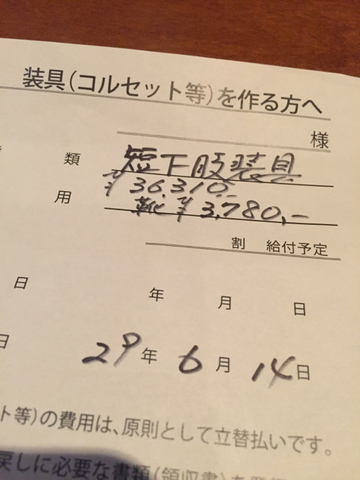 装具(コルセット等)を作る方へ
様
類 短下肢装具
¥36,310,-
用 靴¥3,780,-
割 給付予定
日 年 月 日
日 29年 6月 14日
ト等)の費用は、原則として立替払いです。
戻しに必要な書類(領収書)を